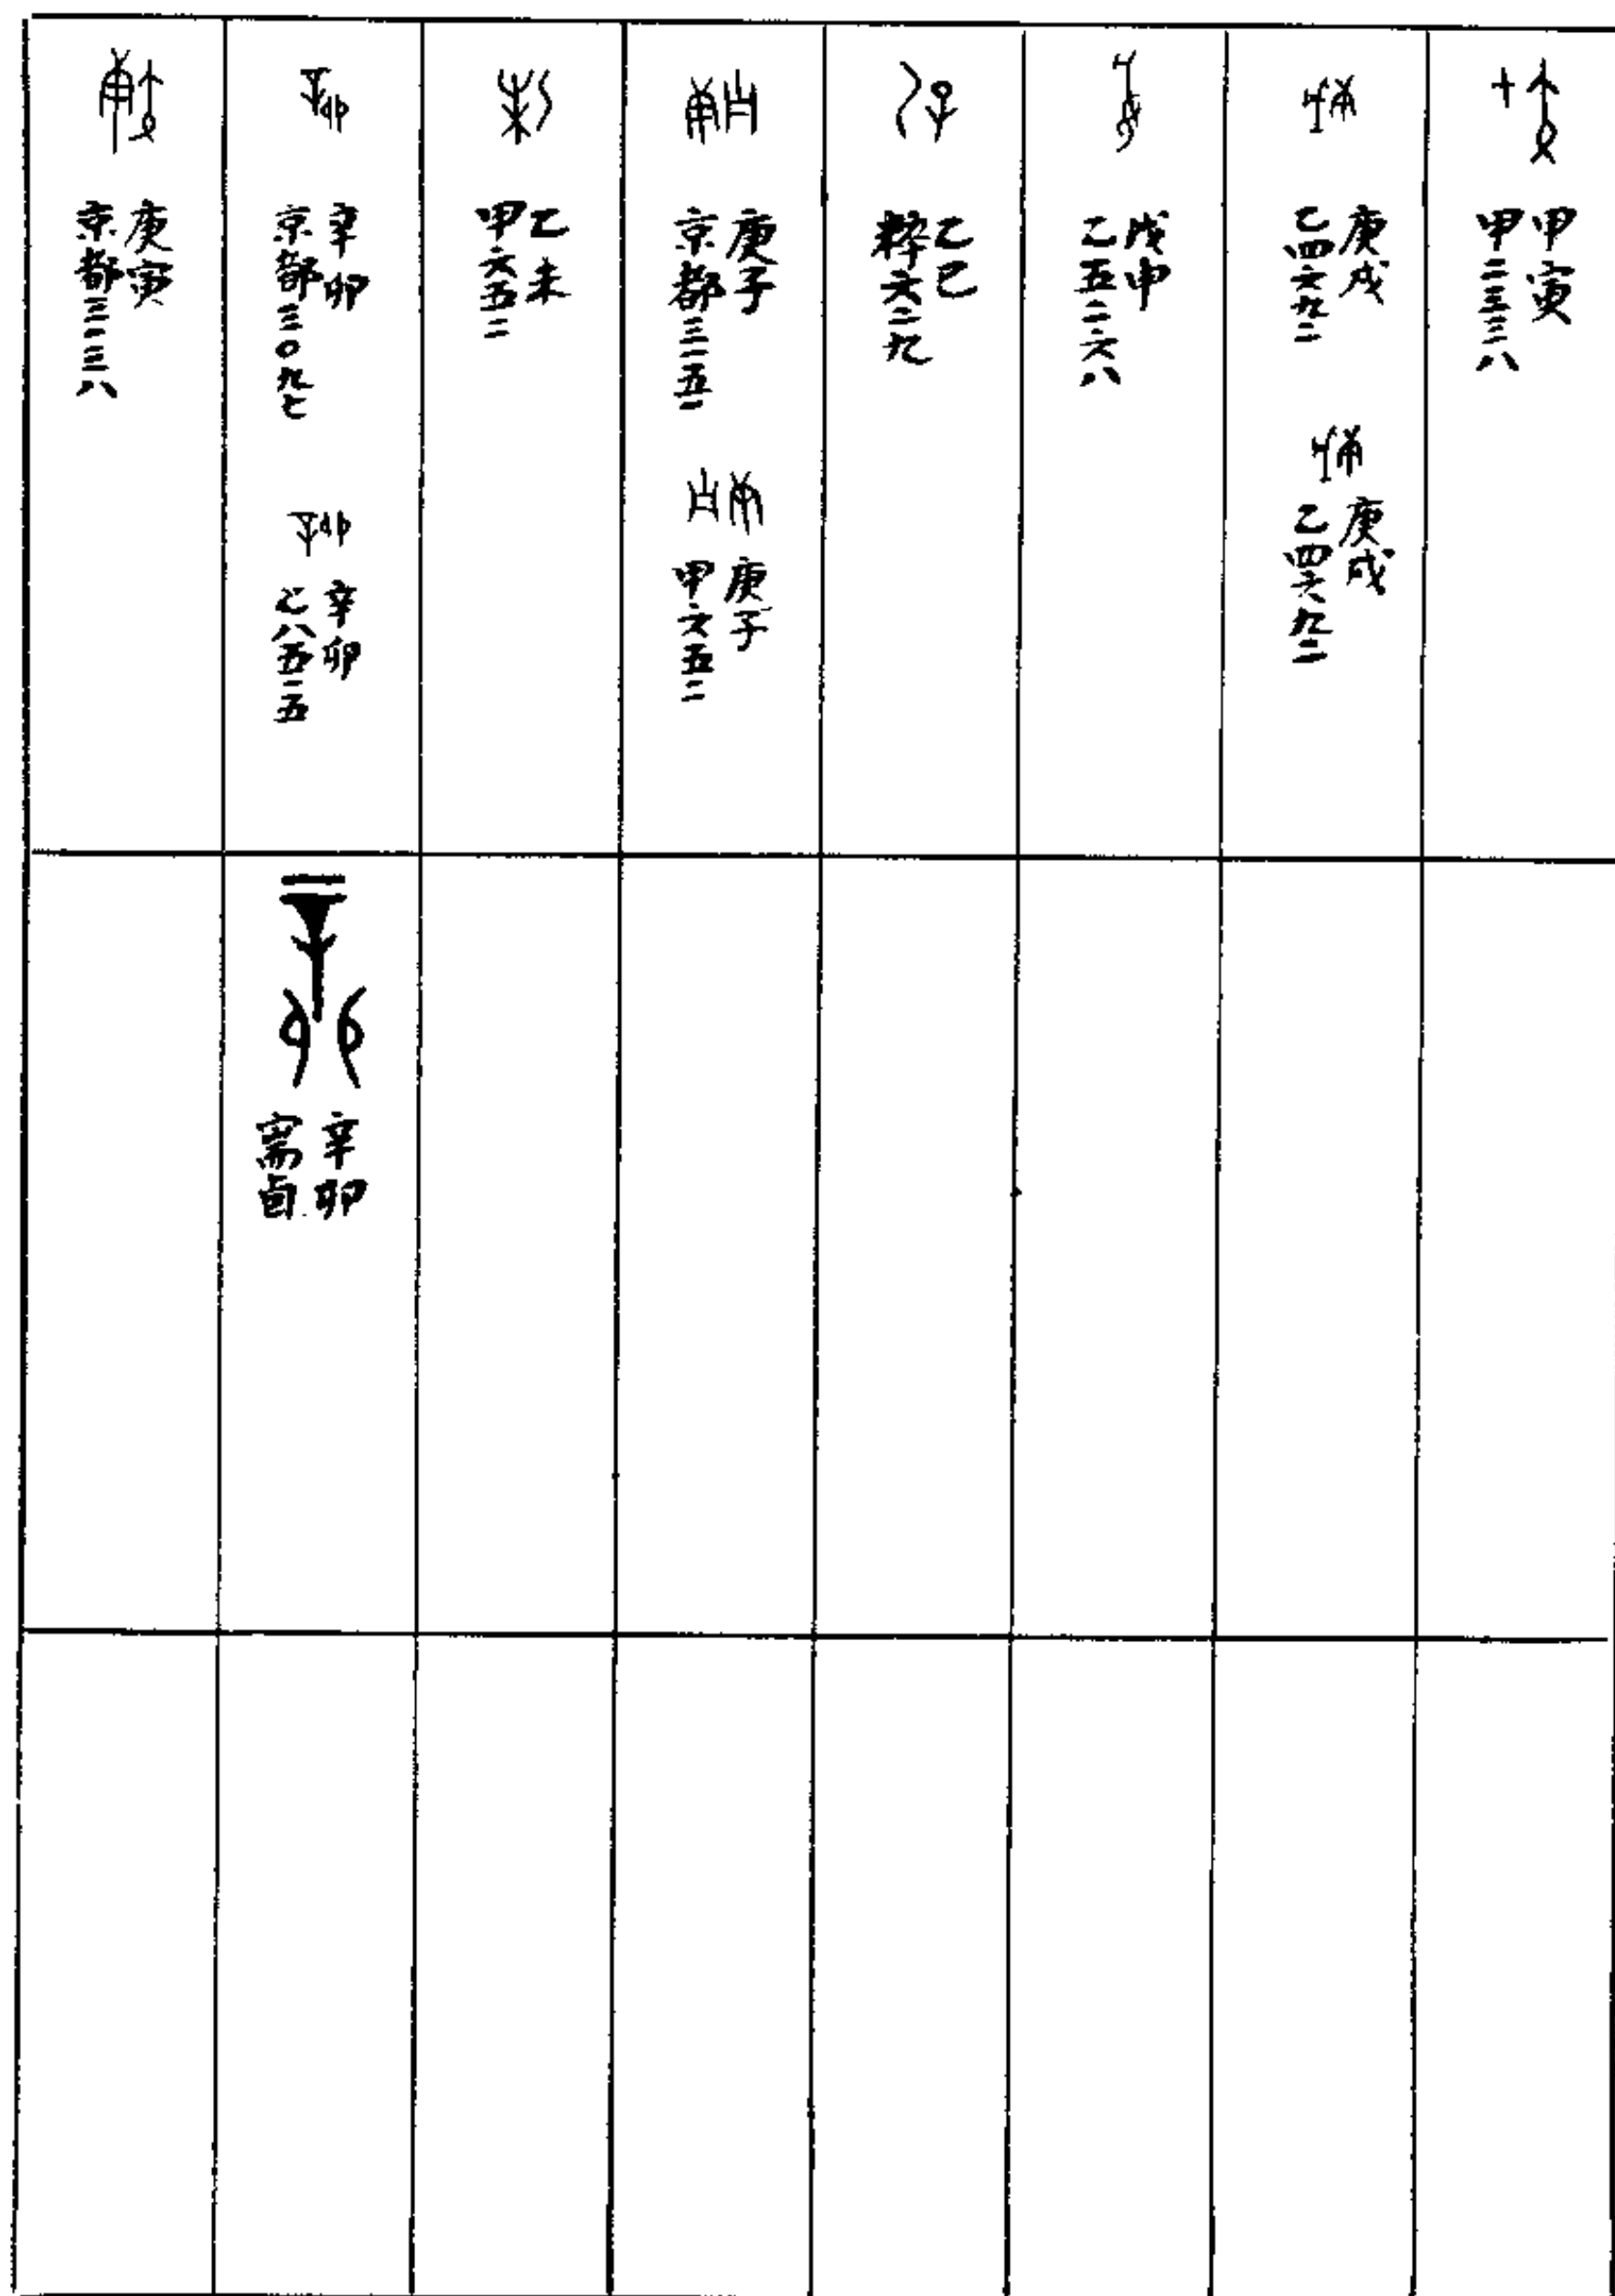 甲寅
甲二三三八
庚戌
乙四六九二
庚戌
乙四六九二
戊申
乙五二六八
乙巳
粹六二九
庚子
京都三二五二
庚子
甲六五二
乙未
甲六五二
辛卯
京都三〇九七
辛卯
乙八五一五
辛卯
寡卣
庚寅